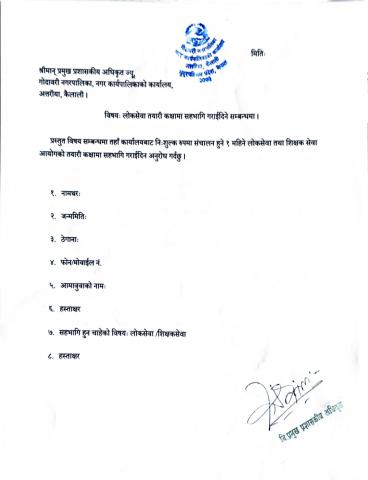 मितिः
श्रीमान् प्रमुख प्रशासकीय अधिकृत ज्यू,
गोदावरी नगरपालिका, नगर कार्यपालिकाको कार्यालय,
अत्तरीया, कैलाली ।
विषयः लोकसेवा तयारी कक्षामा सहभागि गराईदिने सम्बन्धमा ।
प्रस्तुत विषय सम्बन्धमा तहाँ कार्यालयबाट निःशुल्क रुपमा संचालन हुने १ महिने लोकसेवा तथा शिक्षक सेवा
आयोगको तयारी कक्षामा सहभागि गराईदिन अनुरोध गर्दछु ।
१. नामथरः
२. जन्ममितिः
३. ठेगानाः
४. फोन/मोवाईल नं.
५. आमाबुवाको नामः
६. हस्ताक्षर
७. सहभागि हुन चाहेको विषयः लोकसेवा /शिक्षकसेवा
८. हस्ताक्षर
नि प्रमुख प्रशासकीय अधिकृत